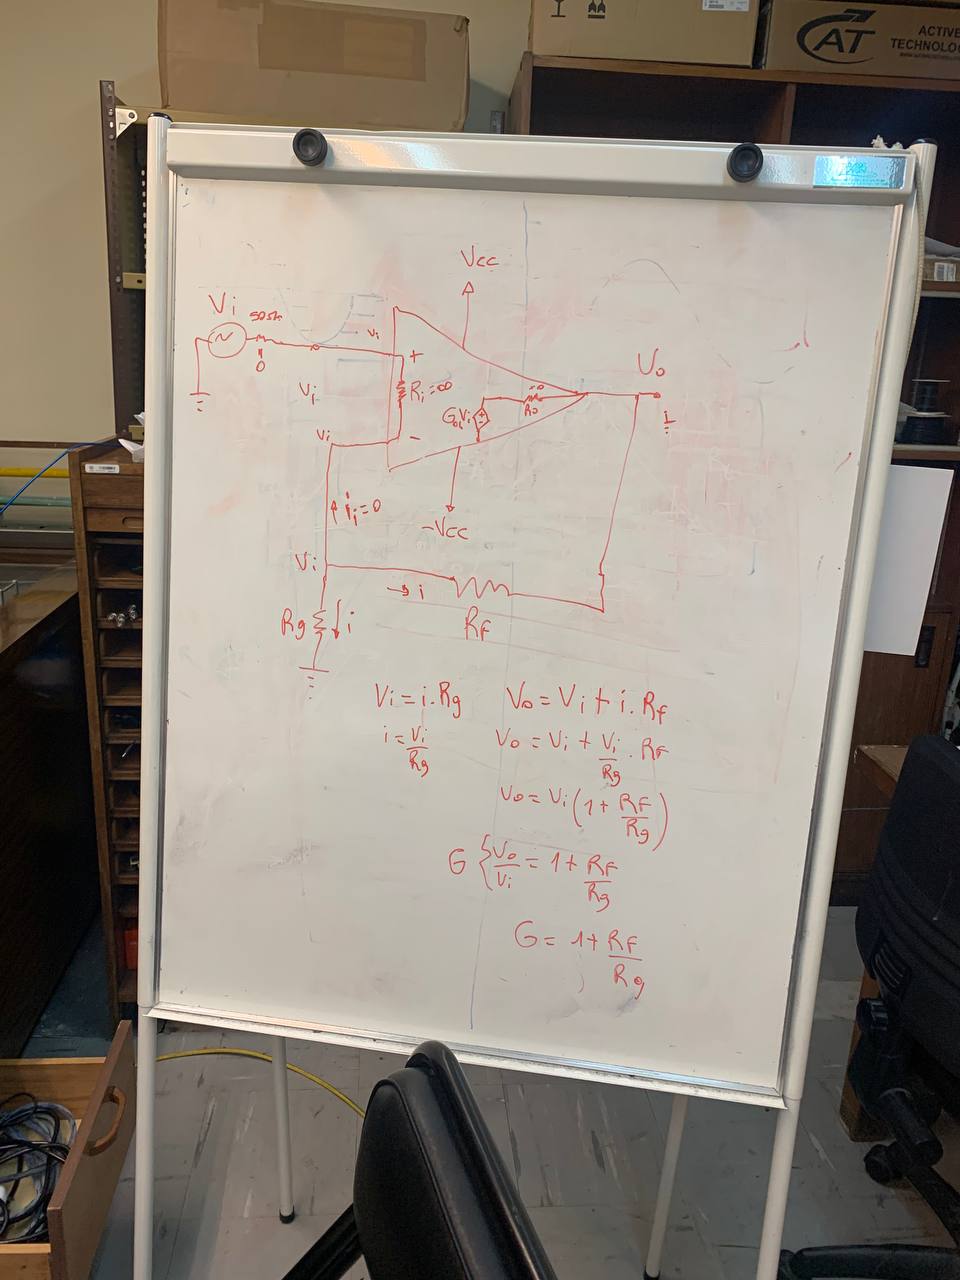 CAT
ACTIVE
TECHNOLO
Vcc
Vi
Vi
+
Vo
Ri=∞
Vi
=0
Ro
GolVi
+
-
Vi
-
ii=0
-Vcc
Vi
→ i
Rg
i
Rf
Vi = i.Rg
i = Vi/Rg
Vo = Vi + i.Rf
Vo = Vi + Vi/Rg . RF
Vo = Vi (1 + RF/Rg)
G { Vo/Vi = 1 + RF/Rg
G = 1 + RF/Rg